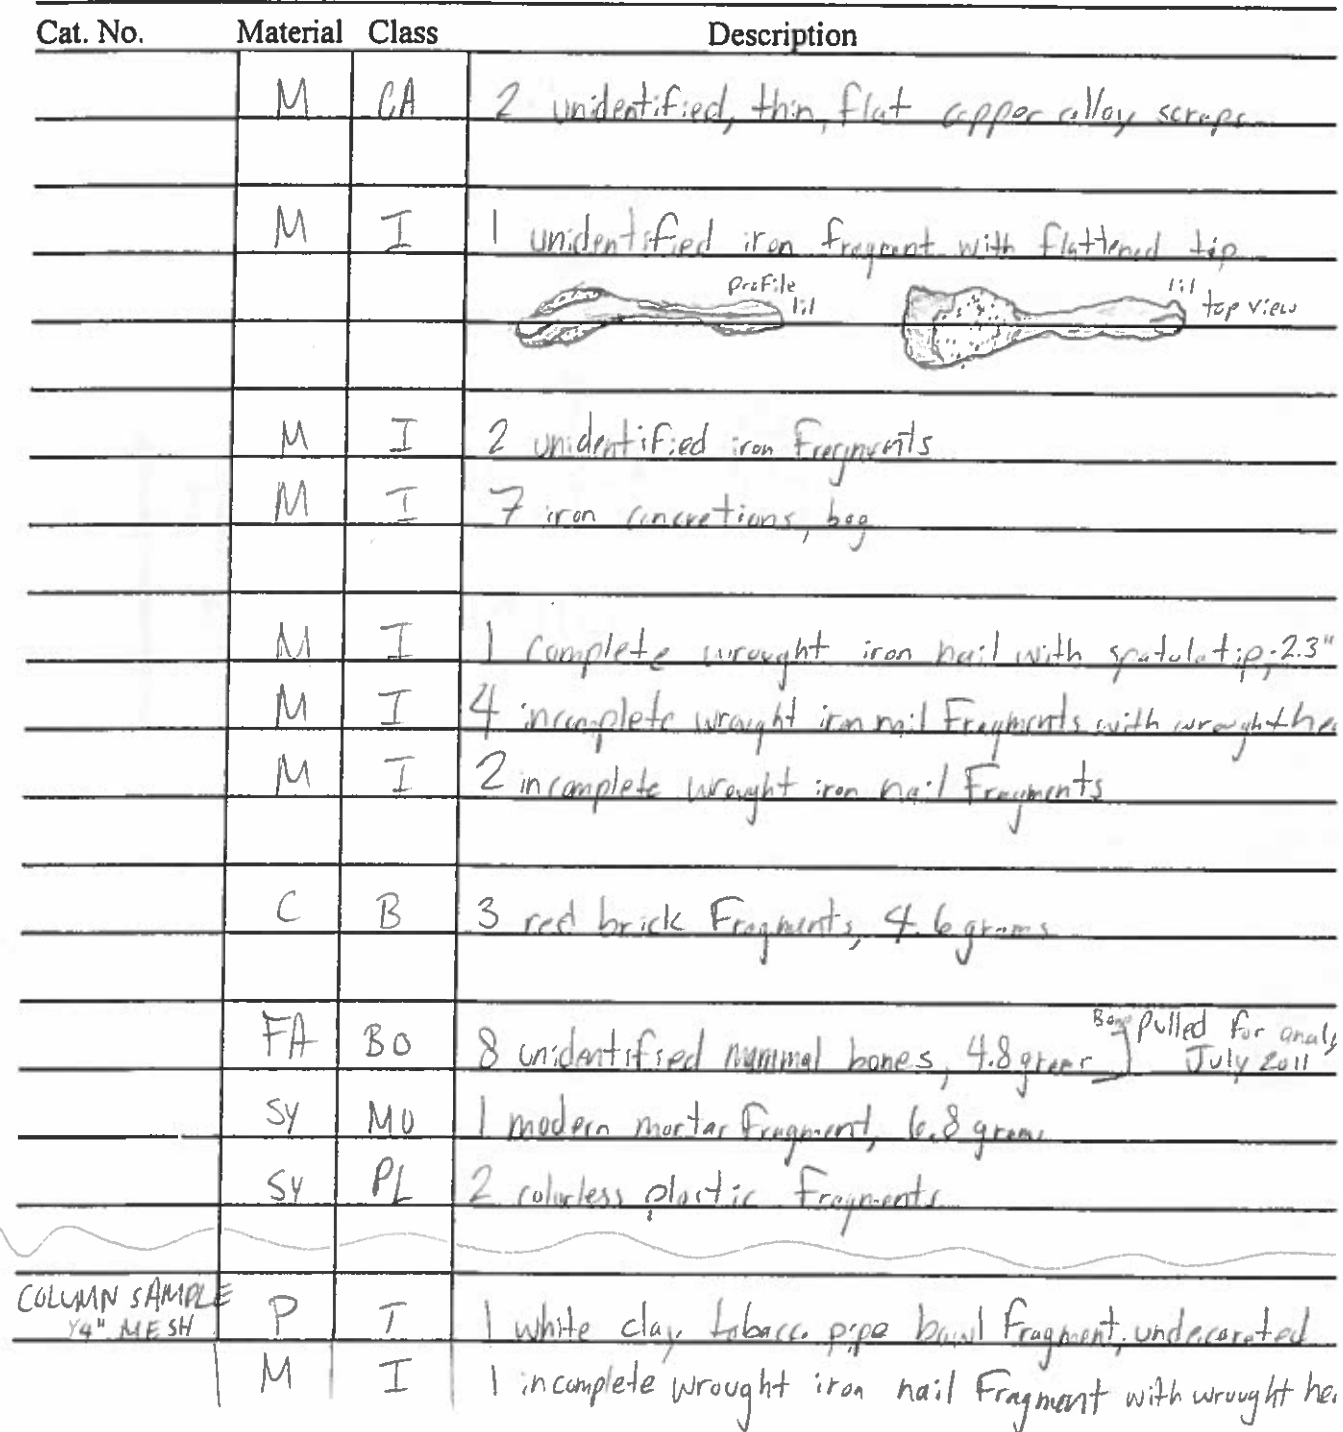 Cat. No. Material Class Description
M CA 2 unidentified, thin, flat copper alloy scraps
M I 1 unidentified iron fragment with flattened tip
profile 1:1 1:1 top view
M I 2 unidentified iron Fragments
M I 7 iron concretions, bag
M I 1 complete wrought iron nail with spatula tip; 2.3"
M I 4 incomplete wrought iron nail Fragments with wrought hea
M I 2 incomplete wrought iron nail Fragments
C B 3 red brick Fragments, 4.6 grams
FA BO 8 unidentified mammal bones, 4.8 grams Bone] Pulled for analy
July 2011
SY MO 1 modern mortar fragment, 6.8 grams
SY PL 2 colorless plastic fragments
COLUMN SAMPLE P T 1 white clay tobacco pipe bowl fragment, undecorated
1/4" MESH
M I 1 incomplete wrought iron nail Fragment with wrought hea